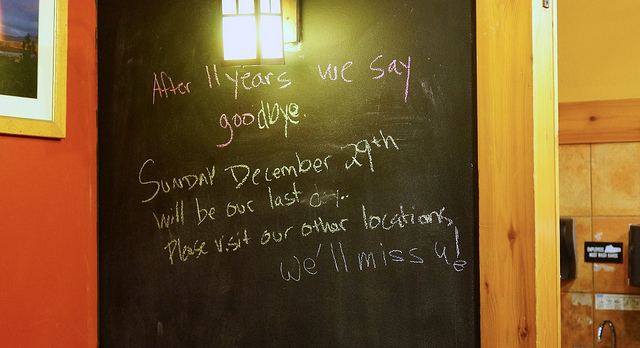 After 11 years we say
goodbye.
Sunday December 29th
will be our last day.
Please visit our other locations,
we'll miss u!
EMPLOYEES
MUST WASH HANDS